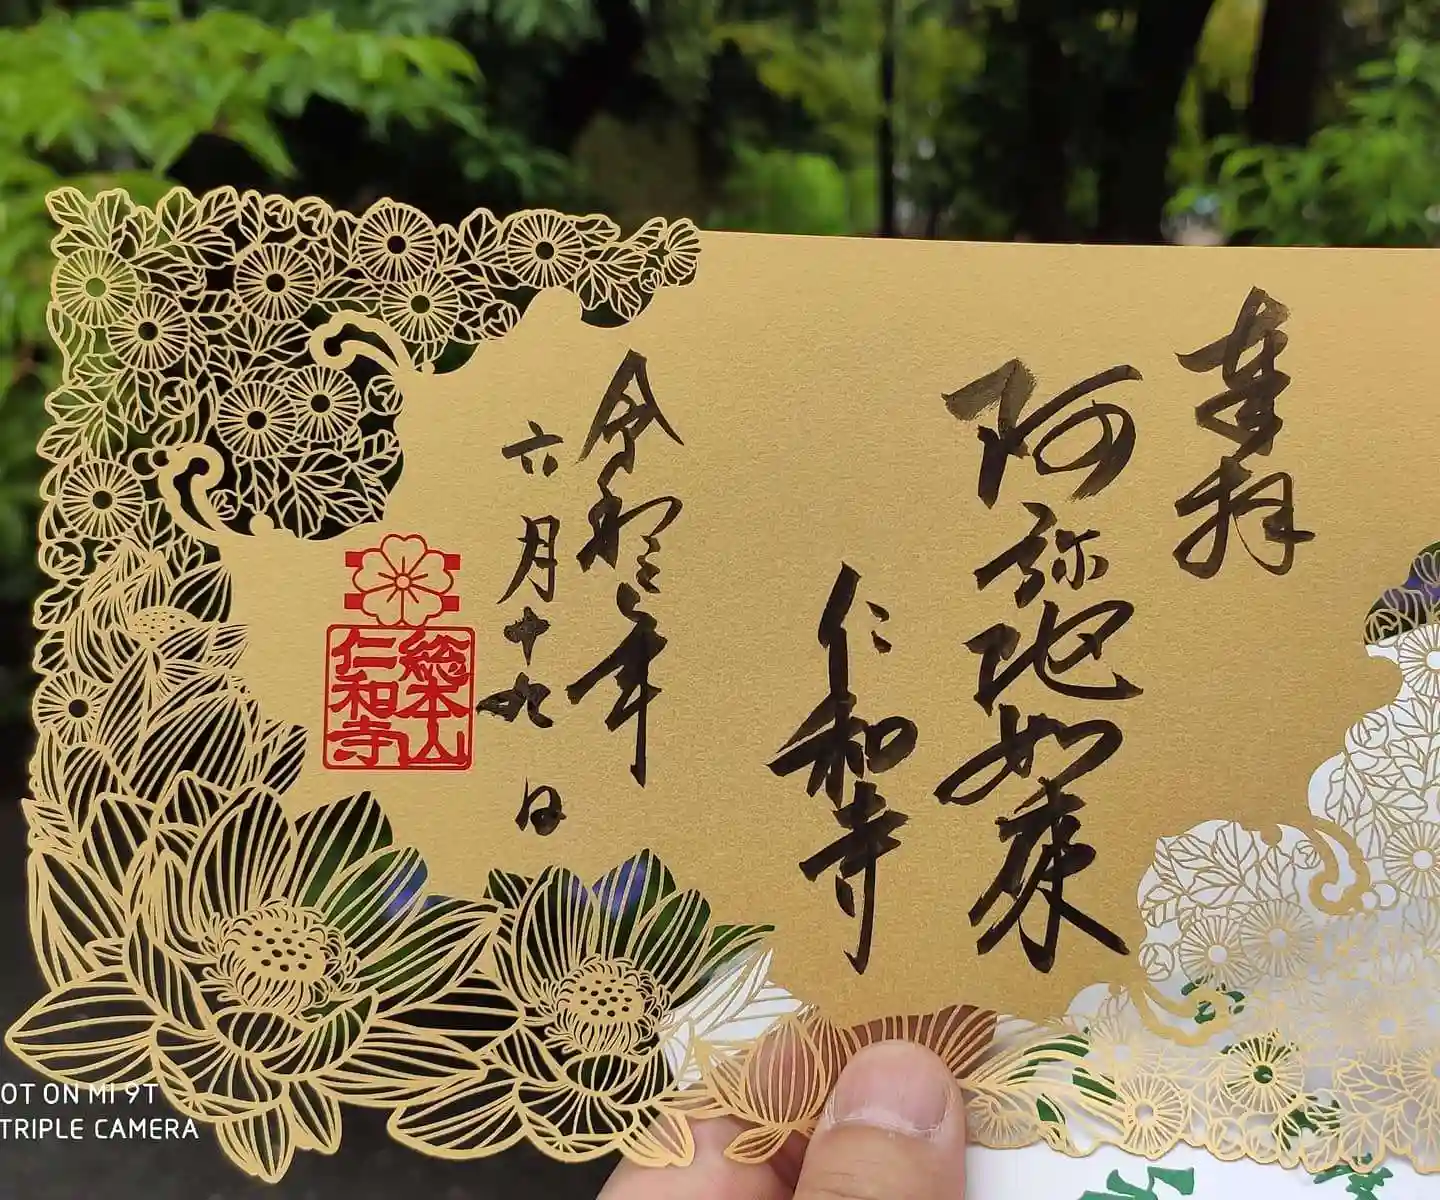 奉拝
阿弥陀如来
仁和寺
令和三年
六月十九日
総本山
仁和寺
OT ON MI 9T
TRIPLE CAMERA